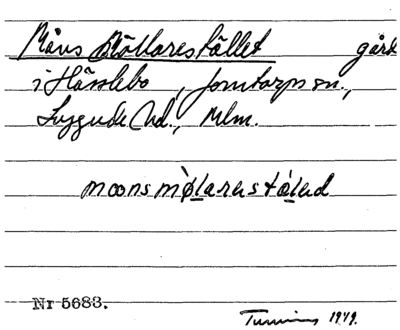 Måns Möllarestället gård
i Hässlebo, Jonstorps sn.,
Luggude hd., Mlm.
moons mø̀larestáled
Nr 5683.
1949.